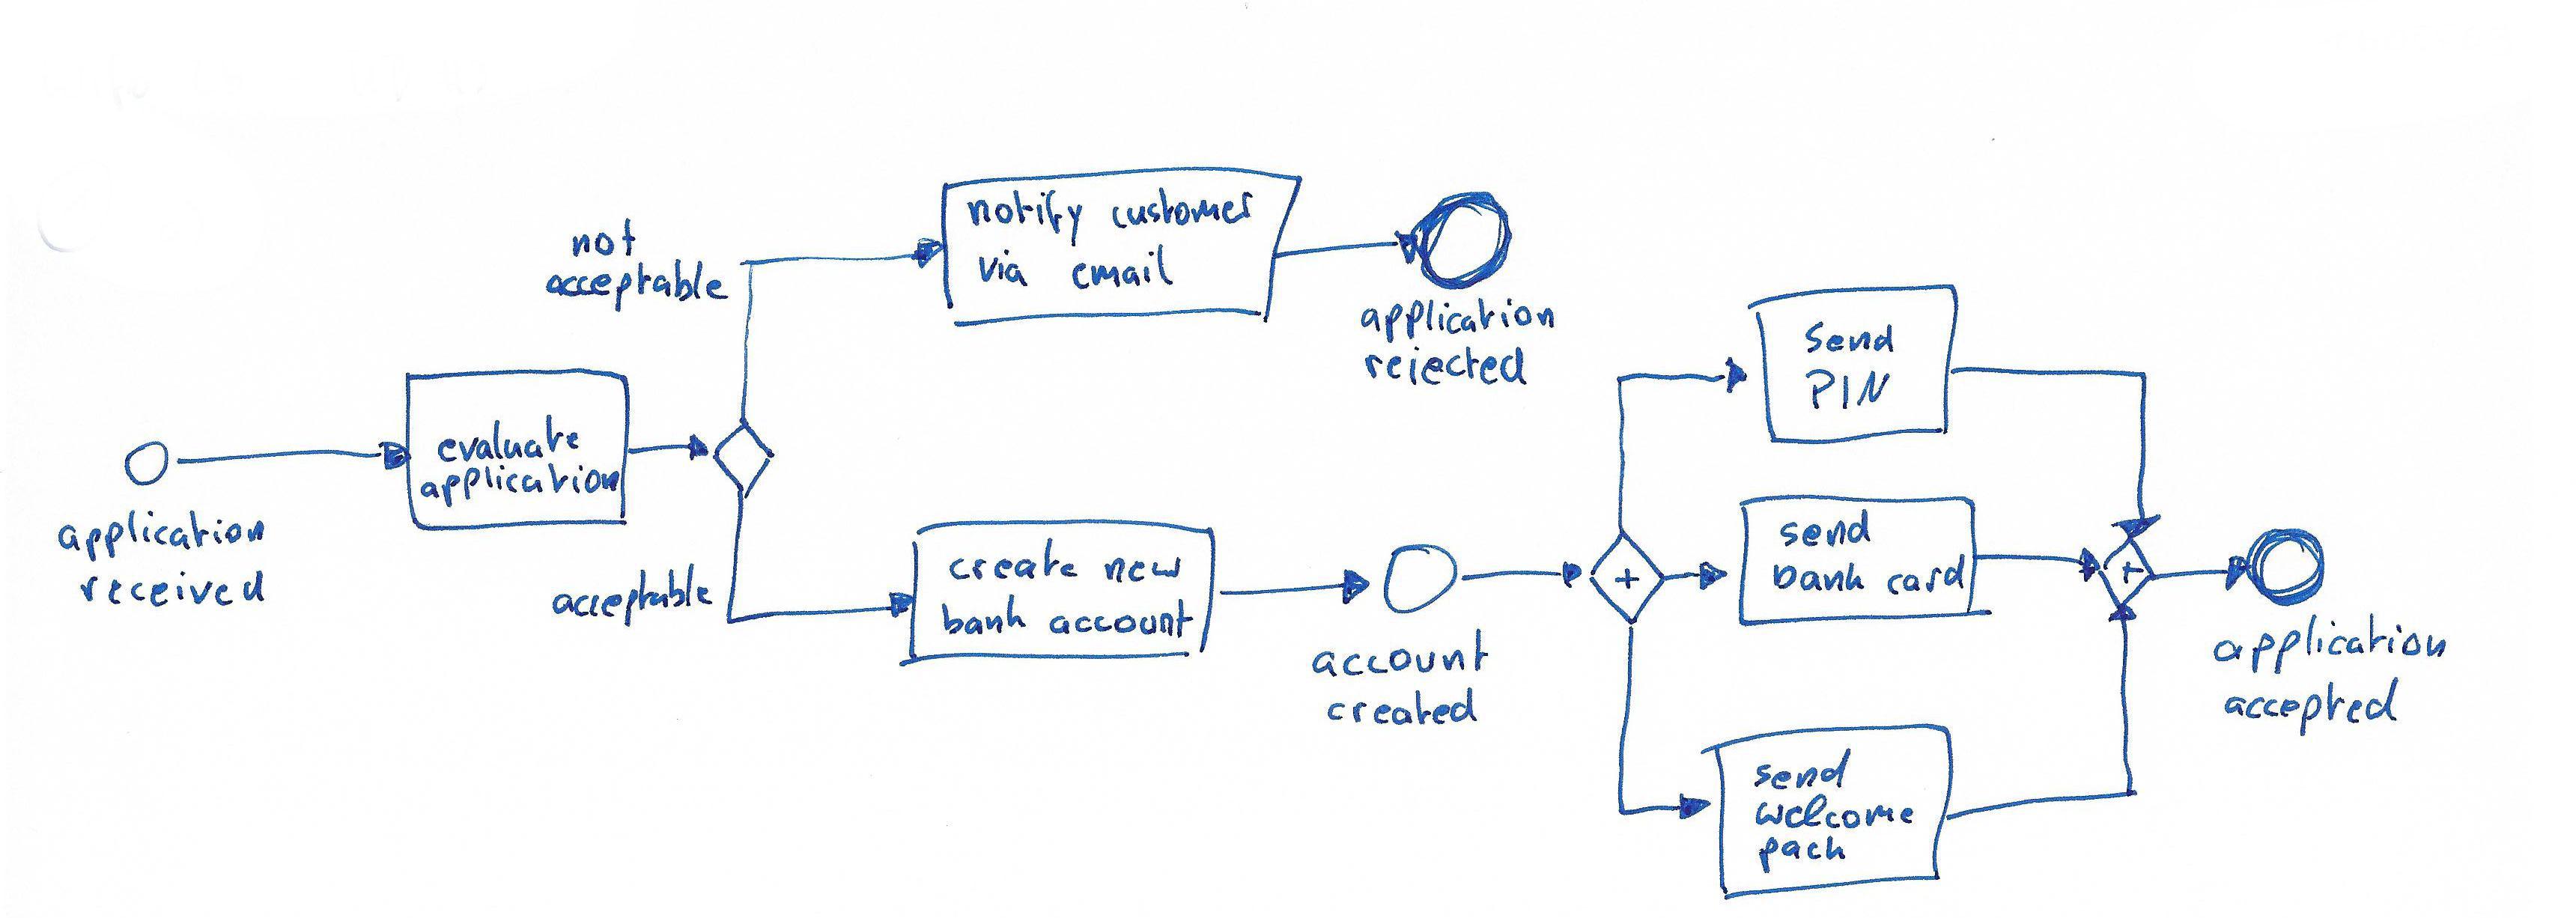 application
received
evaluate
application
not
acceptable
acceptable
notify customer
via email
application
rejected
create new
bank account
account
created
+
send
PIN
send
bank card
send
welcome
pack
+
application
accepted